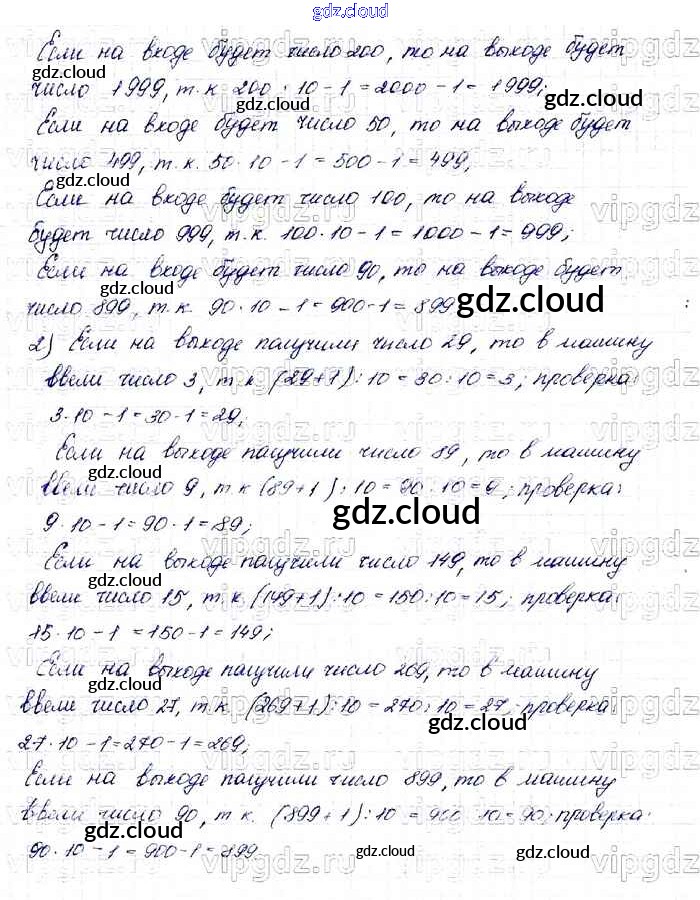 gdz.cloud
Если на входе будет число 200, то на выходе будет
число 1999, т.к. 200 · 10 - 1 = 2000 - 1 = 1999;
Если на входе будет число 50, то на выходе будет
число 499, т.к. 50 · 10 - 1 = 500 - 1 = 499;
Если на входе будет число 100, то на выходе
будет число 999, т.к. 100 · 10 - 1 = 1000 - 1 = 999;
Если на входе будет число 90, то на выходе будет
число 899, т.к. 90 · 10 - 1 = 900 - 1 = 899
2) Если на выходе получили число 29, то в машину
ввели число 3, т.к. (29+1) : 10 = 30 : 10 = 3; проверка:
3 · 10 - 1 = 30 - 1 = 29;
Если на выходе получили число 89, то в машину
ввели число 9, т.к. (89+1) : 10 = 90 : 10 = 9; проверка:
9 · 10 - 1 = 90 - 1 = 89;
Если на выходе получили число 149, то в машину
ввели число 15, т.к. (149+1) : 10 = 150 : 10 = 15; проверка:
15 · 10 - 1 = 150 - 1 = 149;
Если на выходе получили число 269, то в машину
ввели число 27, т.к. (269+1) : 10 = 270 : 10 = 27; проверка:
27 · 10 - 1 = 270 - 1 = 269;
Если на выходе получили число 899, то в машину
ввели число 90, т.к. (899+1) : 10 = 900 : 10 = 90; проверка:
90 · 10 - 1 = 900 - 1 = 899